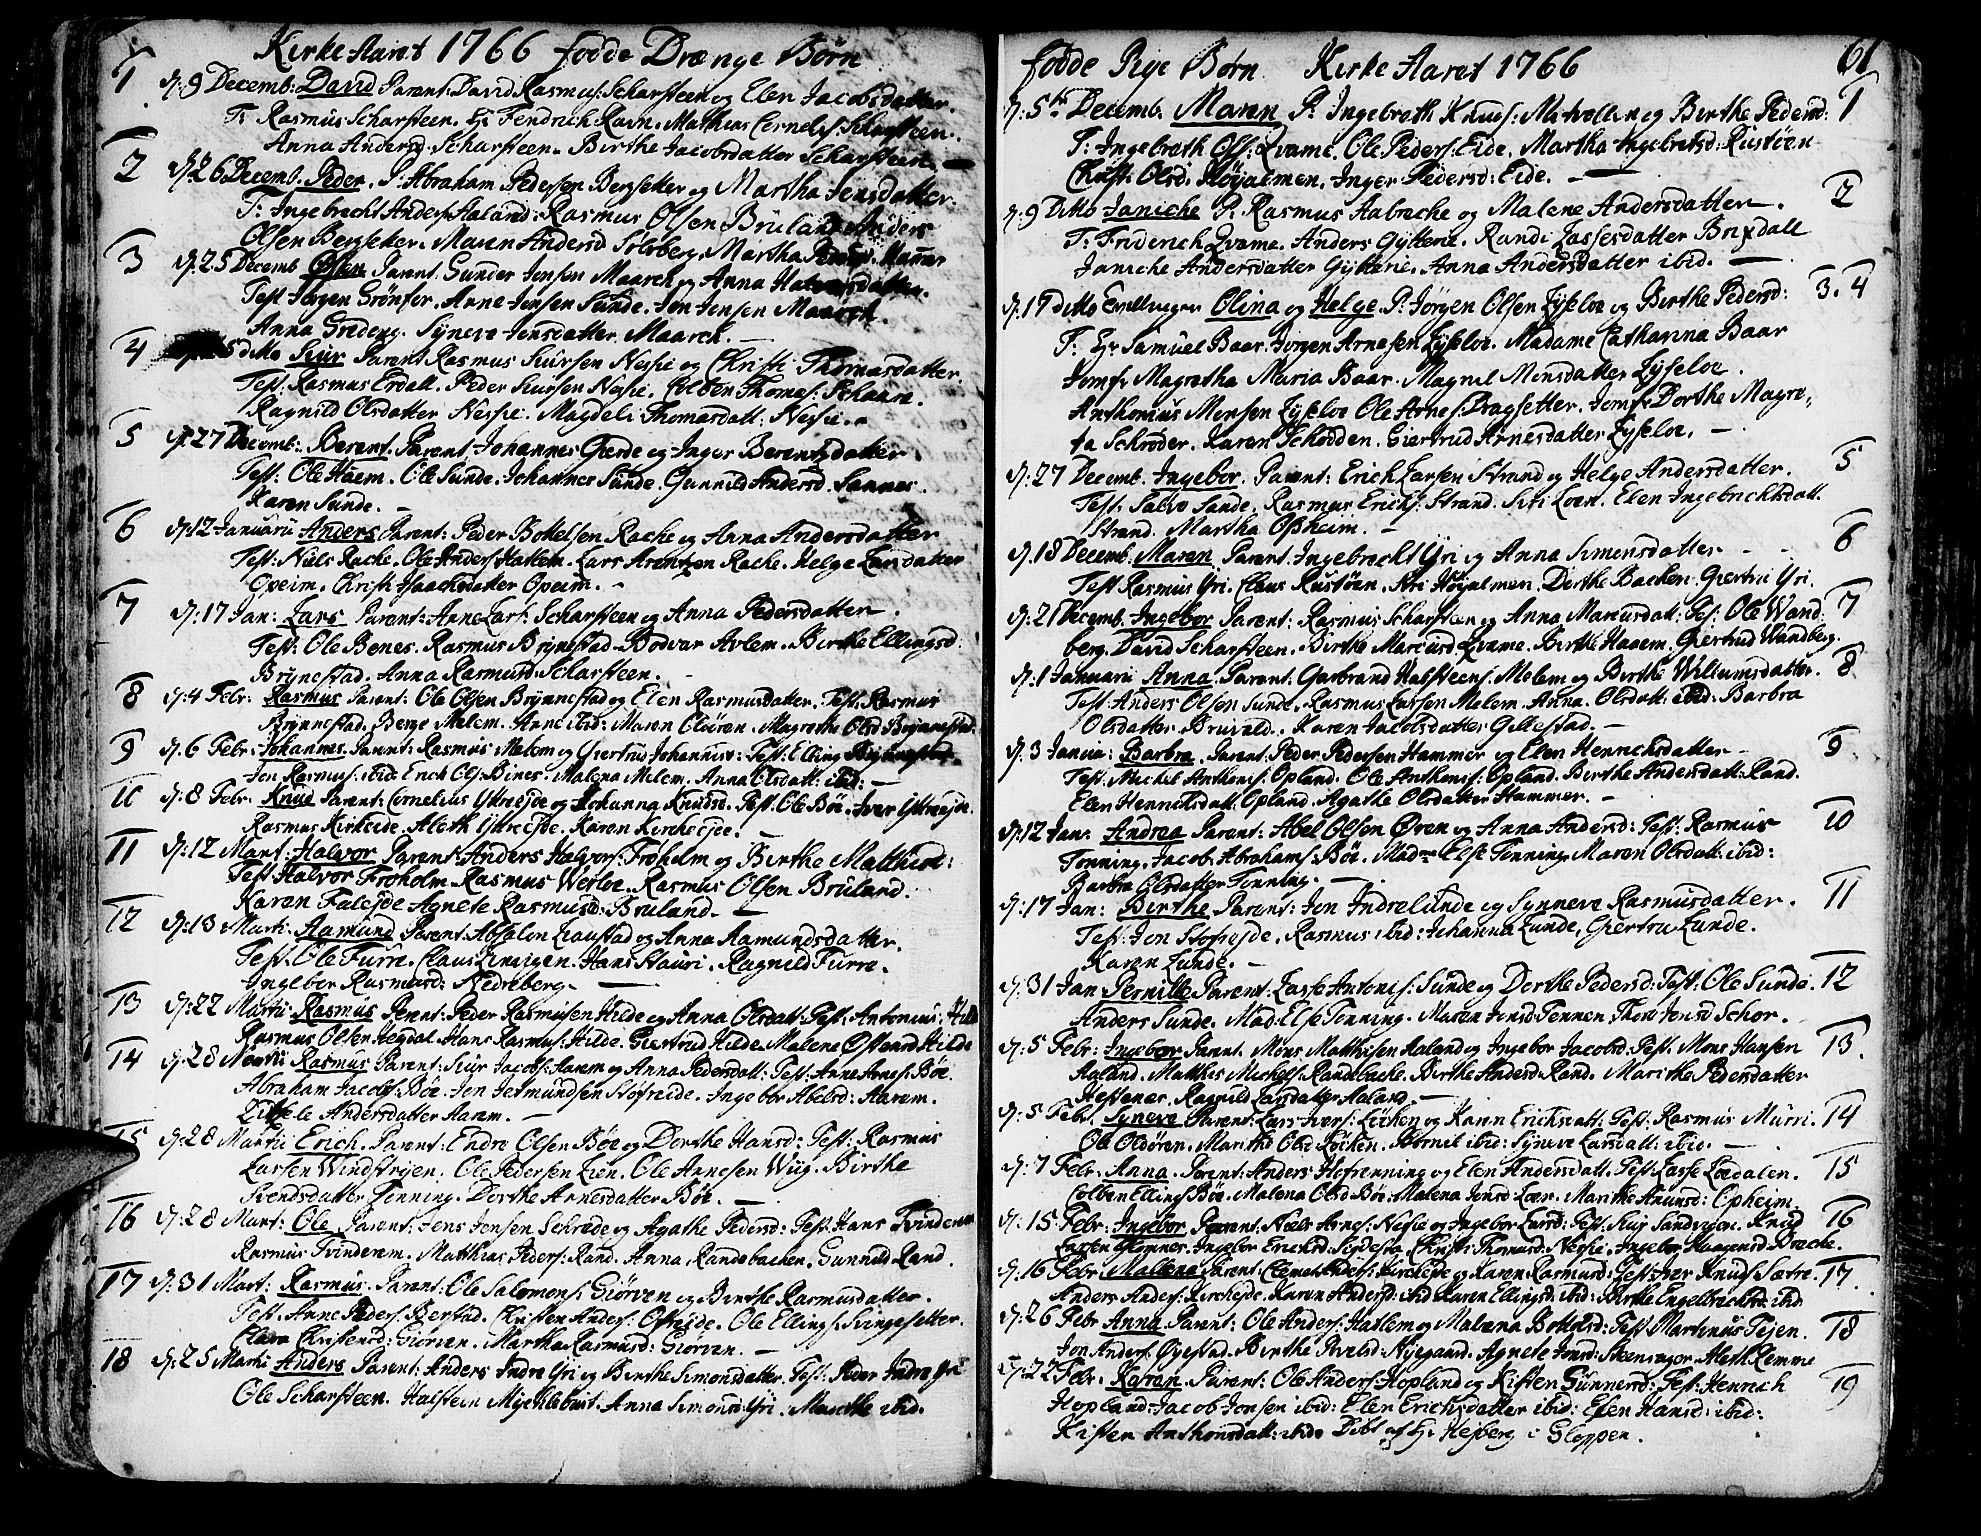 Kirke Aaret 1766 fødde Drænge Børn
1 d. 9 Decemb: David Parent: David Rasmus: Scharsteen og Elen Jacobsdatter.
T: Rasmus Scharsteen. Hr Fendrich Ravn. Mathias Cornelis: Scharsteen.
Anna Andersd Scharsteen. Birthe Jacobsdatter Scharsteen.
2 d. 26 Decemb. Peder. P: Abraham Pedersen Bergseker og Martha Jensdatter.
T: Ingebrecht Anders: Aaland. Rasmus Olsen Bruland Anders
Olsen Bergseker. Maren Andersd Solsberg. Martha
3 d. 25 Decemb Parent: Gunder Jensen Maarch og Anna Halvorsdatter.
Test Jørgen Grønfor. Anne Jensen Sunde. Jon Jensen Maarch.
Anna Gredeng. Syneve Jensdatter Maarch.
4 ditto Siur Parent Rasmus Siursen Nesie og Christi Thomasdatter.
Test: Rasmus Erdall. Peder Siursen Nesie. Colben Thomas: Schaare.
Ragnild Olsdatter Nesse. Magdeli Thomasdatt: Nesie.
5 d. 27 Decemb: Berent. Parent Johannes Gierde og Inger Berentsdatter.
Test: Ole Haem. Ole Sunde. Johannes Sunde. Gunnild Andersd Sannes.
Karen Sunde.
6 d. 12 Januarii Anders Parent: Peder Bottelsen Rache og Anna Andersdatter
Test: Niels Rache. Ole Anders: Hattem. Lars Arentzen Rache. Helge Larsdatter
Opeim. Christi Haachensdatter Opeim.
7 d. 17 Jan: Lars Parent: Arne Lars: Scharsteen og Anna Pedersdatter.
Test: Ole Benes. Rasmus Brynestad. Bodvar Avlem. Birthe Ellingsd
Brynestad. Anna Rasmusd Scharsteen.
8 d. 4 Febr: Rasmus Parent: Ole Olsen Brynnestad og Elen Rasmusdatter. Test: Rasmus
Brynnestad. Berge Melem. Anne ibid: Maren Oldøren. Magrethe Olsd Brynnestad.
9 d. 6 Febr: Johannes. Parent: Rasmus Melem og Giertrud Johannisd: Test: Elling
Jon Rasmus: ibid Erich Ols: Bines. Malena Melem. Anna Olsdatt: ibid:
10 d. 8 Febr: Knud Parent: Cornelius Yttreeide og Johanna Knudsd. Test: Ole Bøe. Iver Yttreeide.
Rasmus Kirkeide. Aleth Yttreeide. Karen Kircheeide.
11 d. 12 Mart: Halvor Parent: Anders Halvors: Frøholm og Birthe Matthisd:
Test Halvor Froholm. Rasmus Werloe. Rasmus Olsen Bruland.
Karen Faleide Agnete Rasmusd: Bruland.
12 d. 13 Mart: Aamund Parent: Absalon Laustad og Anna Aamundsdatter.
Test: Ole Furre. Claus Hans Stauri. Ragnild Furre.
Ingebor Rasmusd: Nedreberg.
13 d. 22 Martii Rasmus Parent: Peder Rasmussen Hilde og Anna Olsdatt: Test: Antonius Hilde
Rasmus Olsen Hans Rasmus: Hilde. Giertrud Hilde. Malene Hilde
14 d. 28 Martii Rasmus Parent: Siur Jacobs: Aarem og Anna Pedersdatt: Test: Anne Arnes: Bøe.
Abraham Jacobs: Bøe. Jon Jetmundsen Stofreide. Ingebor Abelsd: Aarem.
Andersdatter Aarem.
15 d. 28 Martii Erich. Parent: Endre Olsen Bøe og Dorthe Hansd: Test: Rasmus
Larsen Windsryjen. Ole Pedersen Lien. Ole Annesen Wiig. Birthe
Svendsdatter Tenning. Dorthe Arnesdatter Bøe.
16 d. 28 Mart: Ole Parent: Jens Jensen Schrede og Agathe Pedersd: Test: Hans Tvinderem
Rasmus Tvinderem. Matthias Peders: Rand. Anna Randabachen. Gunnild Rand.
17 d. 31 Mart: Rasmus. Parent: Ole Salomons: Giørven og Birthe Rasmusdatter.
Test: Anne Peders: Berstad. Christen Anders: Ostreide. Ole Ellings: Svingesetter.
Christensd: Giørven. Martha Rasmusd: Giørven.
18 d. 25 Marti Anders Parent: Anders Indre Yri og Birthe Simonsdatter. Test: Peder Indre Yri
Ole Scharsteen. Halstein Myhlebust. Anna Simonsd Yri. Marthe ibid.
fødde Pige Børn Kirke Aaret 1766 61
d. 5te Decemb. Maren P: Ingebreth Knuds: Mevollen og Birthe Pedersd: 1
T: Ingebreth Ols: Qvame. Ole Peders: Eide. Martha Ingebretsd: Rustøen
Christ: Olsd. Høyalmen. Inger Pedersd: Eide.
d. 9 Ditto Janiche P: Rasmus Aabreche og Malene Andersdatter. 2
T: Friderich Qvame. Anders Gytterie. Randi Lassesdatter Brixdall
Janiche Andersdatter Gytterie. Anna Andersdatter ibid.
d. 19 Ditto Tvillinger Olina og Helge. P: Jørgen Olsen Lyseloe og Birthe Pedersd: 3. 4
T: Hr Samuel Baar. Jørgen Arnesen Lyseloe. Madame Catharina Baar
Jomfr Magretha Maria Baar. Magnil Monsdatter Lyseloe.
Anthonius Monsen Lyseloe Ole Arnes: Dragsetter. Jomfr Dorthe Magre-
ta Schrøder. Karen Schodden. Giertrud Arnesdatter Lyseloe.
d. 27 Decemb. Ingebor. Parent: Erich Larsen Strand og Helge Andersdatter. 5
Test: Salve Sande. Rasmus Erichs: Strand. Siri Loen. Elen Ingebrichtsdatt.
Strand. Martha Opheim.
d. 18 Decemb. Maren. Parent. Ingebrecht Yri og Anna Simensdatter 6
Test Rasmus Yri. Claus Rustøen. Siri Høyalmen. Dorthe Bachen. Giertru Yri.
d. 21 Decemb. Ingebor Parent: Rasmus Scharsteen og Anna Marcusdatt: Test: Ole Wand 7
berg. David Scharsteen. Birthe Marcusd: Qvame. Birthe Haaem. Giertrud Wandberg.
d. 1 Januarii Anna. Parent: Garbrand Halsteens: Melem og Birthe Willumsdatter. 8
Test Anders Olsen Sunde. Rasmus Larsen Melem. Anna Olsdatt: ibid: Barbra
Olsdatter Bruvold. Karen Jacobsdatter Gillestad.
d. 3 Janua: Barbra. Parent: Peder Pedersen Hammer og Elen Henrichsdatter 9
Test: Michel Anthons: Opland. Ole Anthons: Opland. Birthe Andersdatt: Rand.
Elen Henrichsdatt: Opland. Agathe Olsdatter Hammer.
d. 12 Jan: Andrea Parent: Abel Olsen Øren og Anna Andersd: Test: Rasmus 10
Tonning. Jacob Abrahams: Bøe. Madme Else Tonning. Maren Olsdatt: ibid:
Barbra Olsdatter Tenning.
d. 17 Jan: Birthe. Parent: Jon Indrelunde og Synneve Rasmusdatter. 11
Test: Jon Stofreide. Rasmus ibid: Johanna Lunde, Giertru Lunde.
Karen Lunde.
d. 31 Jan Pernille Parent: Lasse Antonis: Sunde og Dorthe Pedersd: Test: Ole Sunde. 12
Anders Sunde. Mad: Else Tonning. Maren Jonsd Tennen. Thore Jensd Schor.
d. 5 Febr: Ingebor Parent. Møns Matthisen Aaland og Ingebor Jacobsd: Test. Mons Hansen 13.
Aaland. Matthis Michels Randsbache. Birthe Andersd Rand. Marithe Pedersdatter
Hestenes. Ragnild Larsdatter Aaland.
d. 5 Febr. Syneve Parent: Lars Ivers: Løken og Karen Erichsdatt: Test: Rasmus Murri. 14
Ole Oldøren. Marithe Olsd Løken. ibid: Syneve Larsdatt: ibid.
d. 7 Febr. Anna. Parent: Anders Hofrenning og Elen Andersdatt. Test: Lasse Lødalen. 15
Colben Ellings: Bøe. Malena Olsd Bøe. Malena Jonsd Loen. Marithe Anunsd: Opheim.
d. 15 Febr: Ingebor Parent: Niels Arnes: Nesie og Ingebor Larsd: Test: Sivi Sandvigen. Knud 16
Larsen Glomnes. Ingebor Erichsd Christi Thomasd: Nesie. Ingebor Haagensd Breche.
d. 16 Febr. Malena Parent: Clemet Anders: Kircheide og Karen Rasmusd: Test: Iver Knuds: Sætre 17.
Anders Anders: Kircheide. Karen Andersd: ibid Karen Ellingsd ibid: Birthe Engelbrechtsd: ibid:
d. 26 Febr Anna Parent: Ole Anders: Hatlem og Malena Bottolsd: Test Martinus Tejen. 18
Jon Anders: Øyestad. Birthe Nygaard. Agnete Jonsd: Steensager. Aleth Remme
d. 22 Febr. Karen. Parent: Ole Anders: Hopland og Kisten Gunnersd: Test: Henrich 19
Hopland. Jacob Jonsen ibid: Elen Erichsdatter ibid: Elen Hansd: ibid:
Kisten Anthonsdatt: ibid: Døbt af Hr Hejberg i Gloppen.